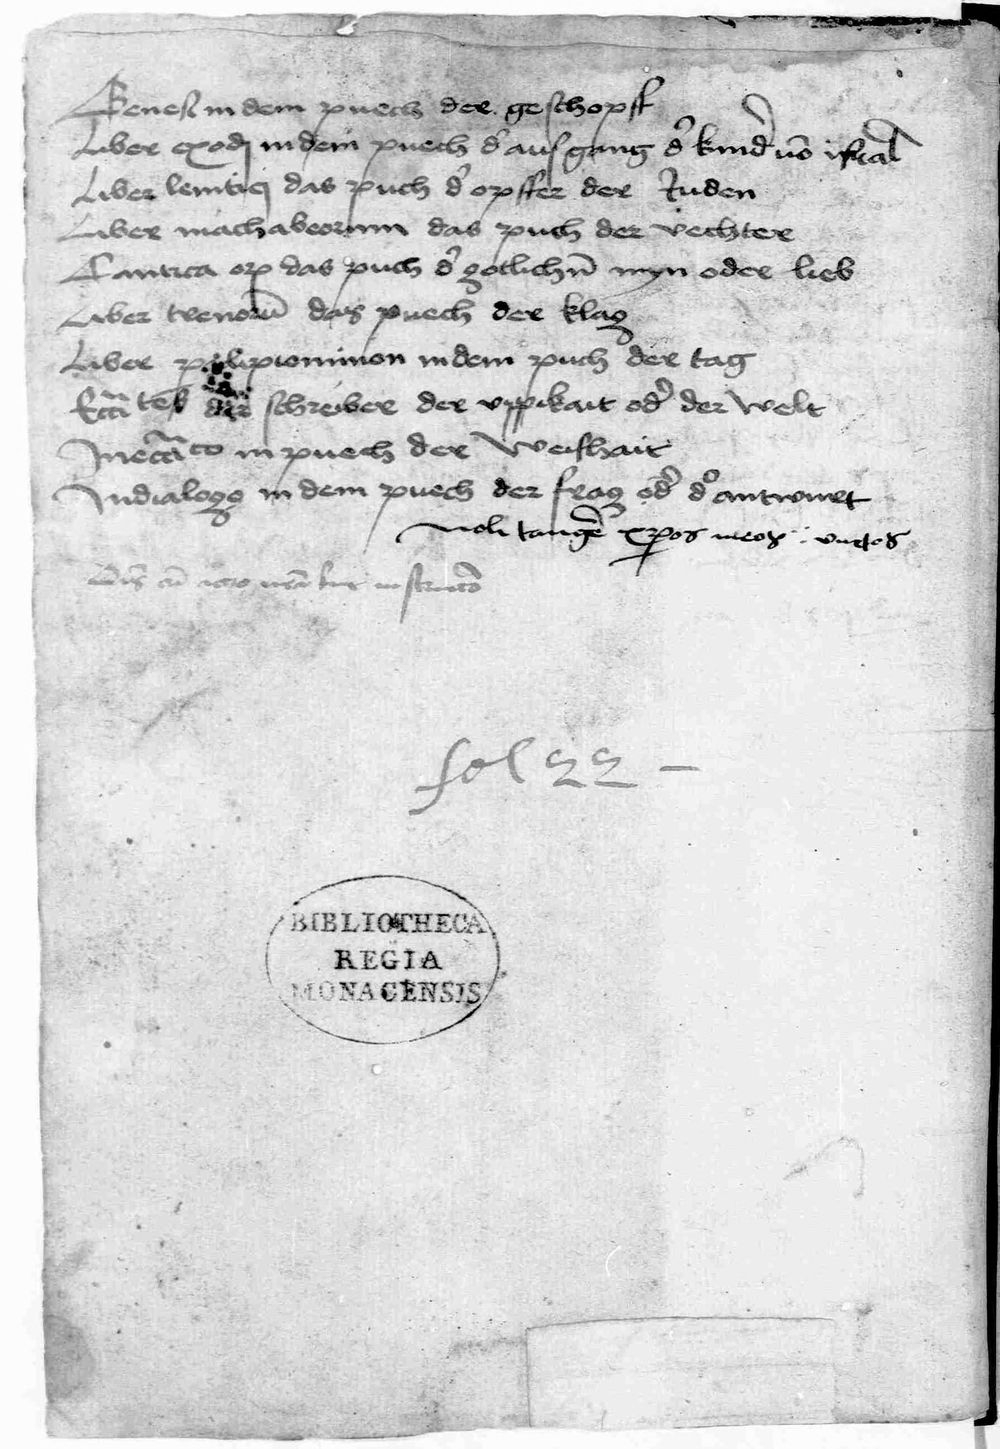 Genesi in dem puech der geschopff
Liber exodi in dem puech d' ausgang d' kind' võ israel
Liber levitici das puch d' opffer der Juden
Liber machabeorum das puch der vechter
Cantica das puch d' gotlichñ myn oder lieb
Liber trenorũ das puech der klag
Liber in dem puch der tag
schreiber der uppikait od' der welt
in puech der Weishait
In dialogo in dem puech der frag od' d' antwurt
noli tang'e xp̃os meos
fol 22 –
BIBLIOTHECA
REGIA
MONACENSIS